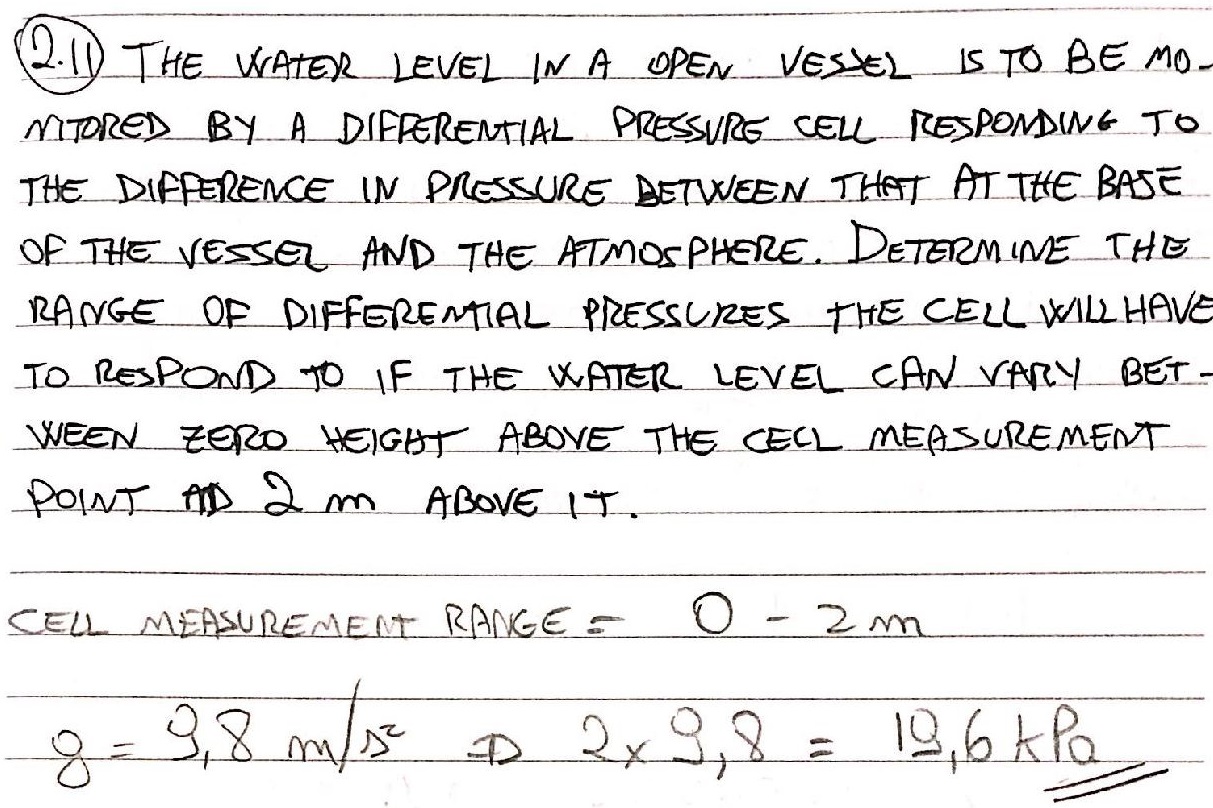 2.11 THE WATER LEVEL IN A OPEN VESSEL IS TO BE MO-
NITORED BY A DIFFERENTIAL PRESSURE CELL RESPONDING TO
THE DIFFERENCE IN PRESSURE BETWEEN THAT AT THE BASE
OF THE VESSEL AND THE ATMOSPHERE. DETERMINE THE
RANGE OF DIFFERENTIAL PRESSURES THE CELL WILL HAVE
TO RESPOND TO IF THE WATER LEVEL CAN VARY BET-
WEEN ZERO HEIGHT ABOVE THE CELL MEASUREMENT
POINT AD 2 m ABOVE IT.
CELL MEASUREMENT RANGE = 0 - 2 m
g = 9,8 m/s² ⇒ 2 x 9,8 = 19,6 kPa